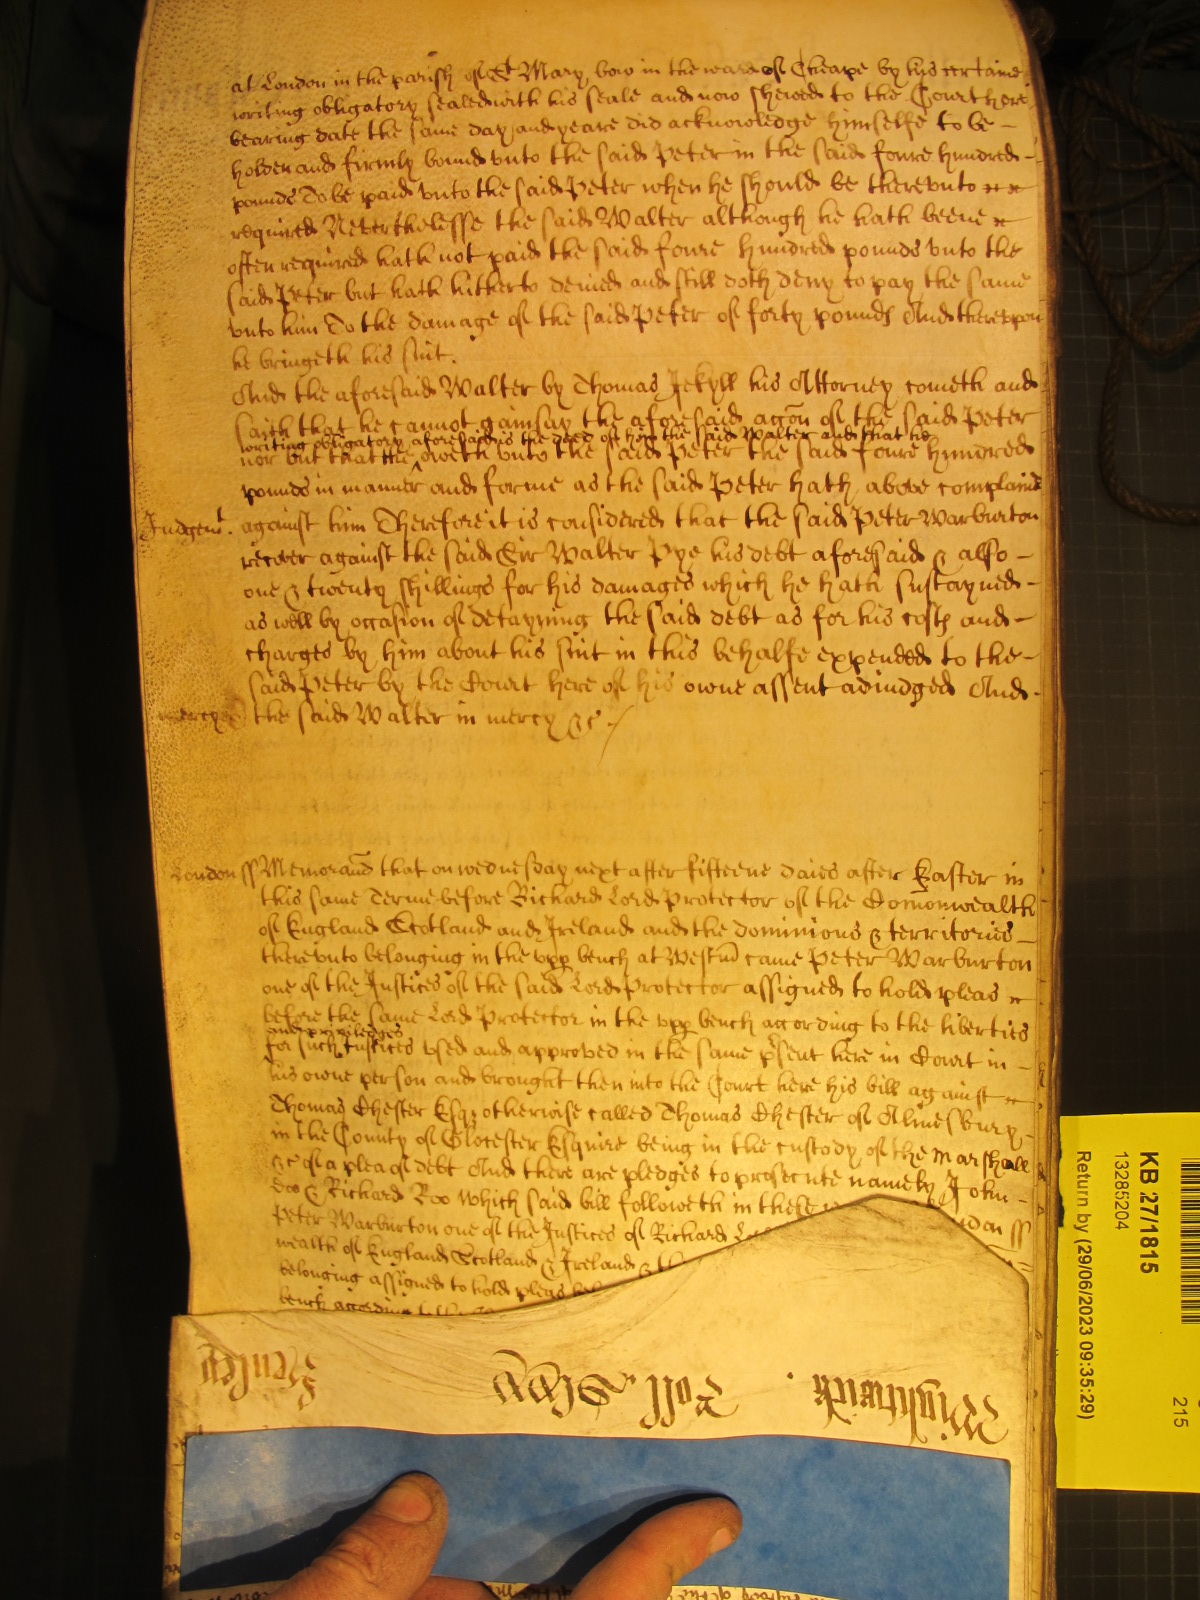 at London in the parish of St Mary bow in the ward of Cheape by his certaine
writing obligatory sealed with his seale and now shewed to the Court here
bearing date the same day and yeare did acknowledge himselfe to be
holden and firmly bound vnto the said Peter in the said foure hundred
pounds To be paid vnto the said Peter when he should be therevnto
required Neverthelesse the said Walter although he hath beene
often required hath not paid the said foure hundred pounds vnto the
said Peter but hath hitherto denied and still doth deny to pay the same
vnto him To the damage of the said Peter of forty pounds And therevpon
he bringeth his suit.
And the aforesaid Walter by Thomas Jekyll his Attorney cometh and
saith that he cannot gainsay the aforesaid accon of the said Peter
writing obligatory aforesaid is the deed of him the said Walter and that he
nor but that the oweth vnto the said Peter the said foure hundred
pounds in manner and forme as the said Peter hath above complained
Judgemt. against him Therefore it is considered that the said Peter Warburton
recover against the said Sir Walter Pye his debt aforesaid & also
one & twenty shillings for his damages which he hath sustayned
as well by occasion of detayning the said debt as for his costs and
charges by him about his suit in this behalfe expended to the
said Peter by the Court here of his owne assent adiudged And
mercy the said Walter in mercy &c
London ss Memorand that on wednesday next after fifteene daies after Easter in
this same Terme before Richard Lord Protector of the Comonwealth
of England Scotland and Ireland and the dominions & territories
therevnto belonging in the vpp bench at Westm came Peter Warburton
one of the Justices of the said Lord Protector assigned to hold pleas
before the same Lord Protector in the vpp bench according to the liberties
and priviledges
for such Justices vsed and approved in the same psent here in Court in
his owne person and brought then into the Court here his bill against
Thomas Chester Esq otherwise called Thomas Chester of Almesbury
in the County of Glocester Esquire being in the custody of the Marshall
&c of a plea of debt And there are pledges to prosecute namely John
Doo & Richard Roo which said bill followeth in these
Peter Warburton one of the Justices of Richard
wealth of England Scotland & Ireland &
belonging assigned to hold pleas
bench according
Wightwick . Roll.
Henley
KB 27/1815
13285204
Return by (29/06/2023 09:35:29)
215